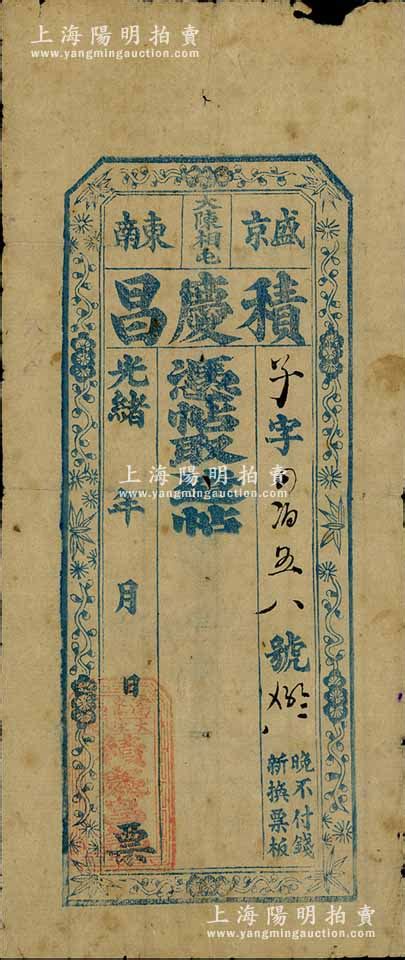 上海陽明拍賣
www.yangmingauction.com
盛京
大陳相屯
東南
積慶昌
字 百五八 號
晚不付錢
新換票板
憑帖取 帖
光緒 年 月 日 票
上海陽明拍賣
www.yangmingauction.com
上海陽明拍賣
www.yangmingauction.com
上海陽明拍賣
www.yangmingauction.com